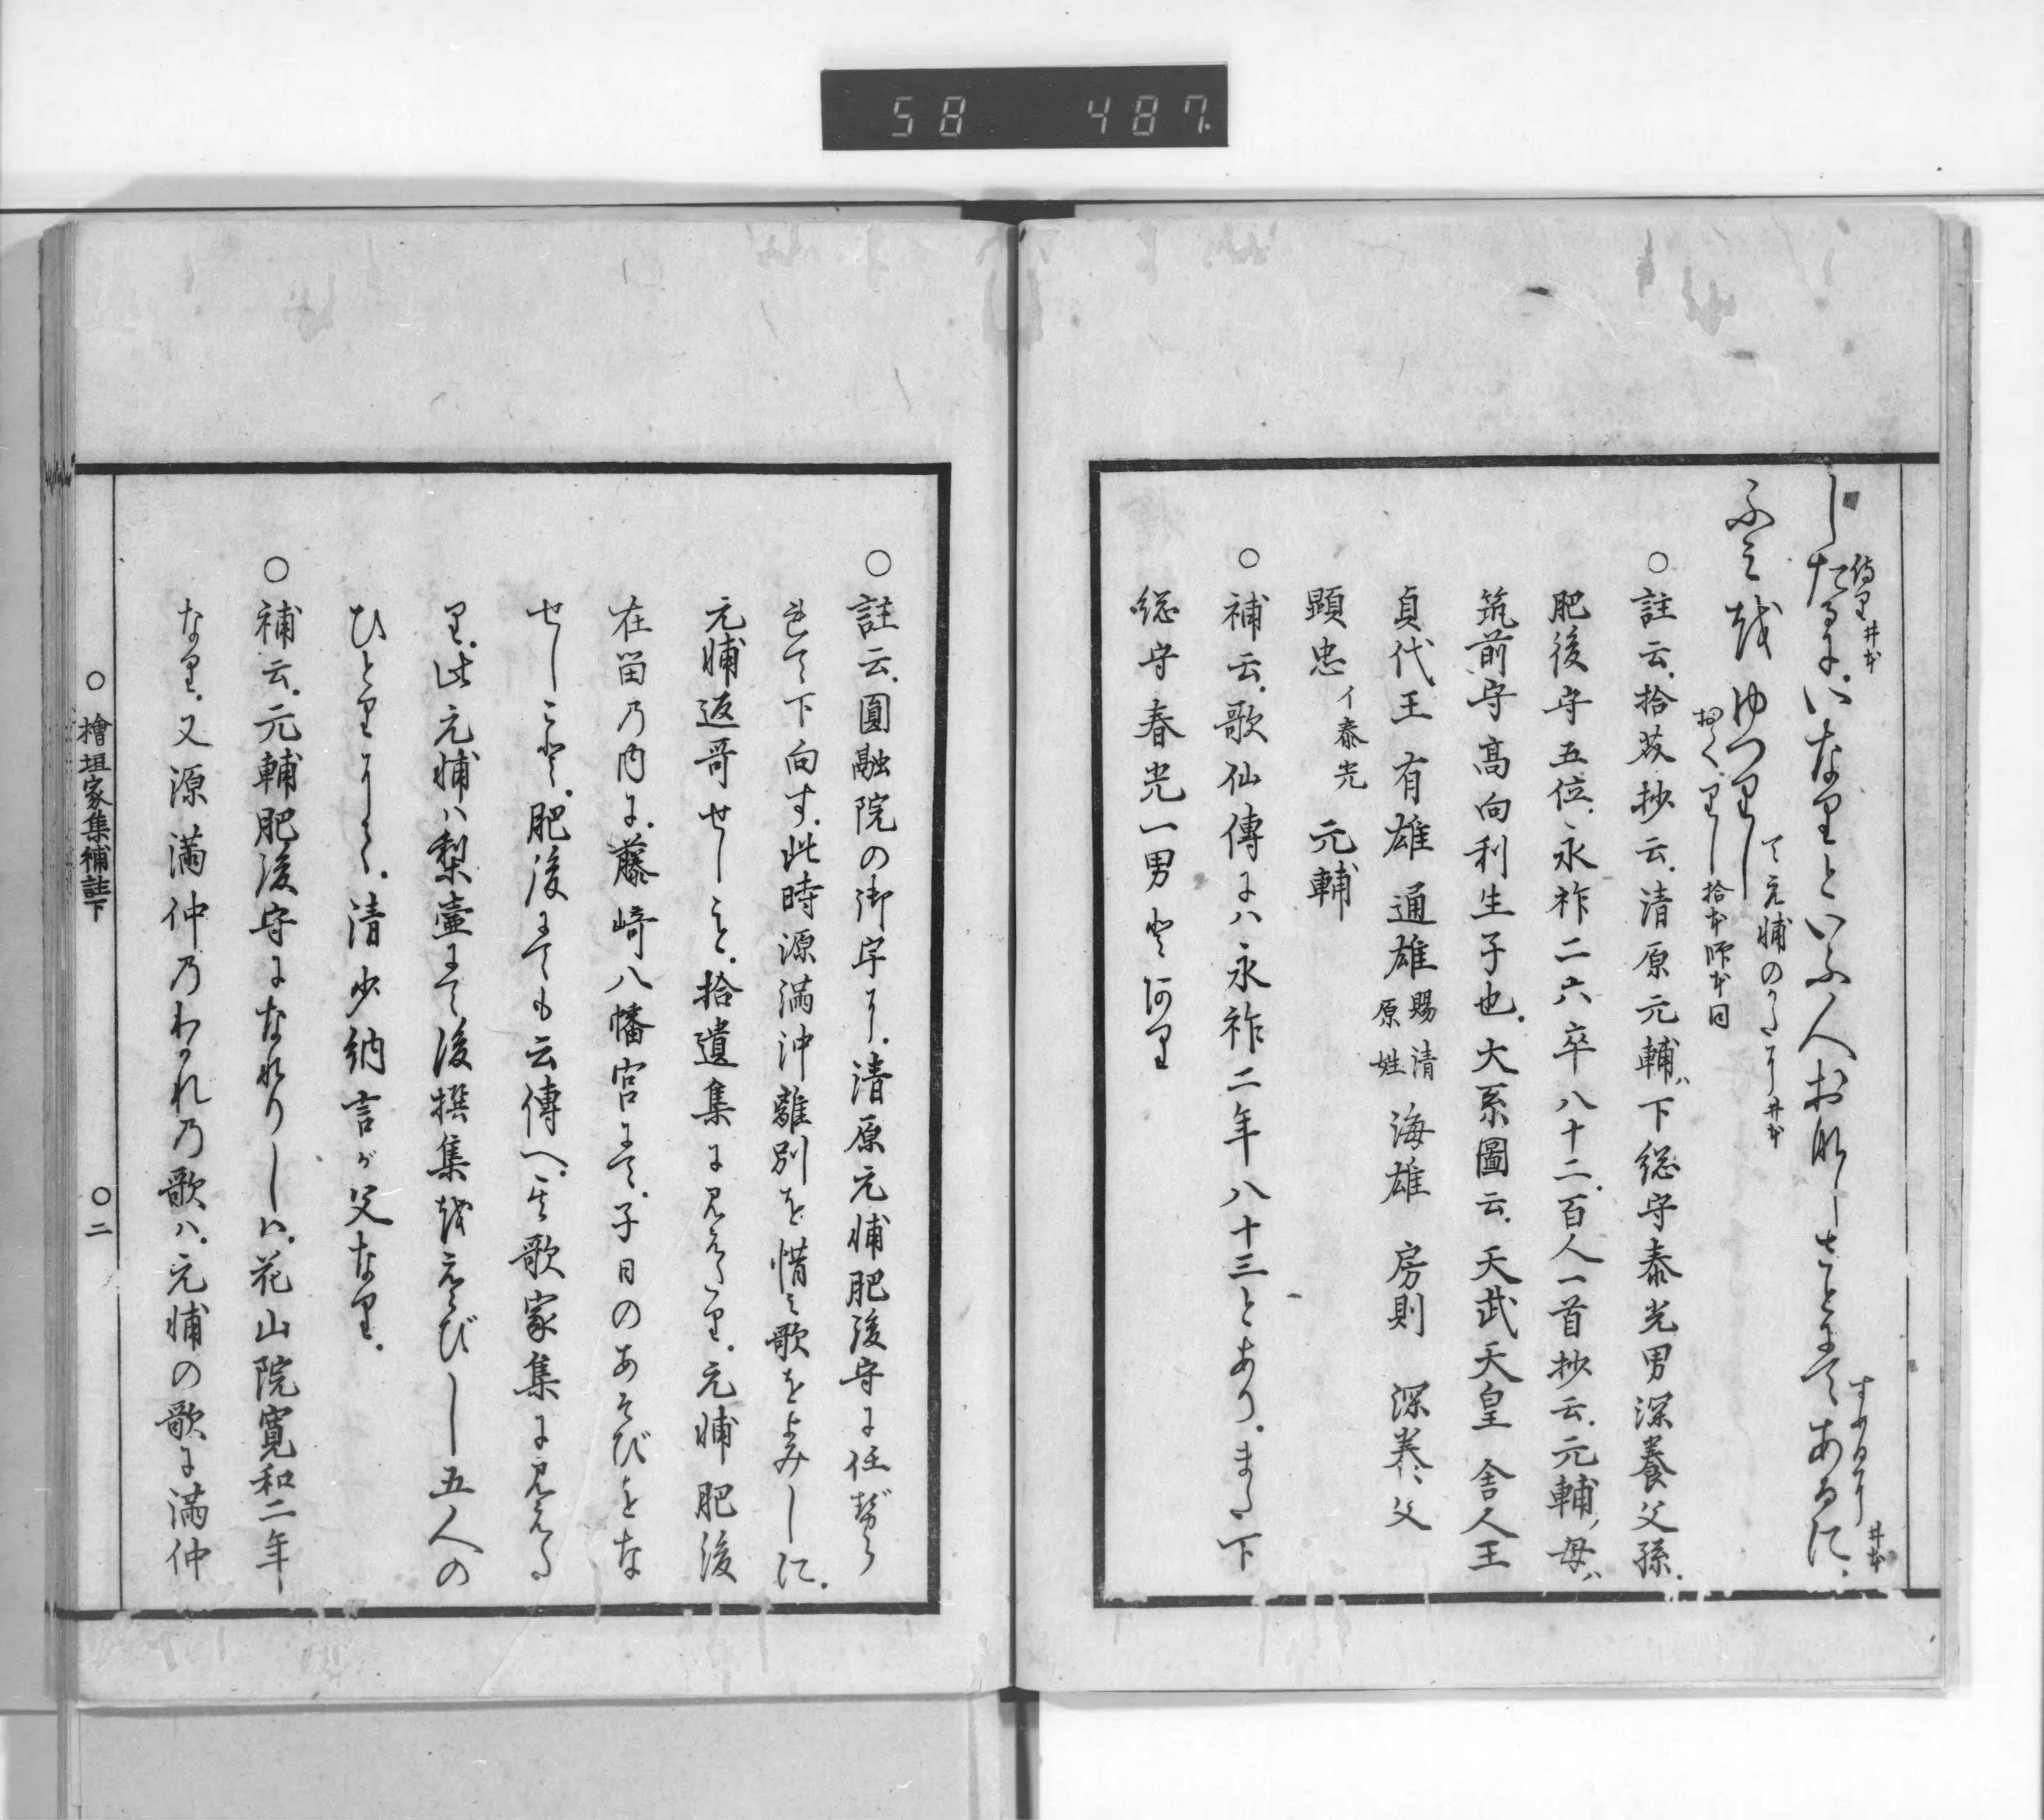 58 487
したるに、いなりといふ人おなしさとにてあるに、
侍里井本
すめるに井本
ふミ越ゆつりし
て元輔のうたに井本
くりし拾本師本同
○註云、拾芥抄云、清原元輔ハ下総守泰光男深養父孫、
肥後守五位、永祚二六卒八十二、百人一首抄云、元輔ノ母ハ
筑前守高向利生子也、大系圖云、天武天皇 舎人王
貞代王 有雄 通雄賜清原姓 海雄 房則 深養父
顕忠イ泰光 元輔
○補云、歌仙傳にハ永祚二年八十三とあり、また下
総守春光一男とあり
○註云、圓融院の御宇に、清原元輔肥後守に任ぜら
れて下向す、此時源満沖離別を惜ミ歌をよみしに、
元輔返哥せしこと、拾遺集に見えたり、元輔肥後
在留乃内に、藤崎八幡宮にて、子日のあそびをな
せしこと、肥後にても云傳へ、其歌家集に見えた
り、此元輔ハ梨壷にて後撰集越えらびし五人の
ひとりにて、清少納言が父なり、
○補云、元輔肥後守になれりしハ、花山院寛和二年
なり、又源満仲乃わかれ乃歌ハ、元輔の歌に満仲
○檜垣家集補註下 ○二